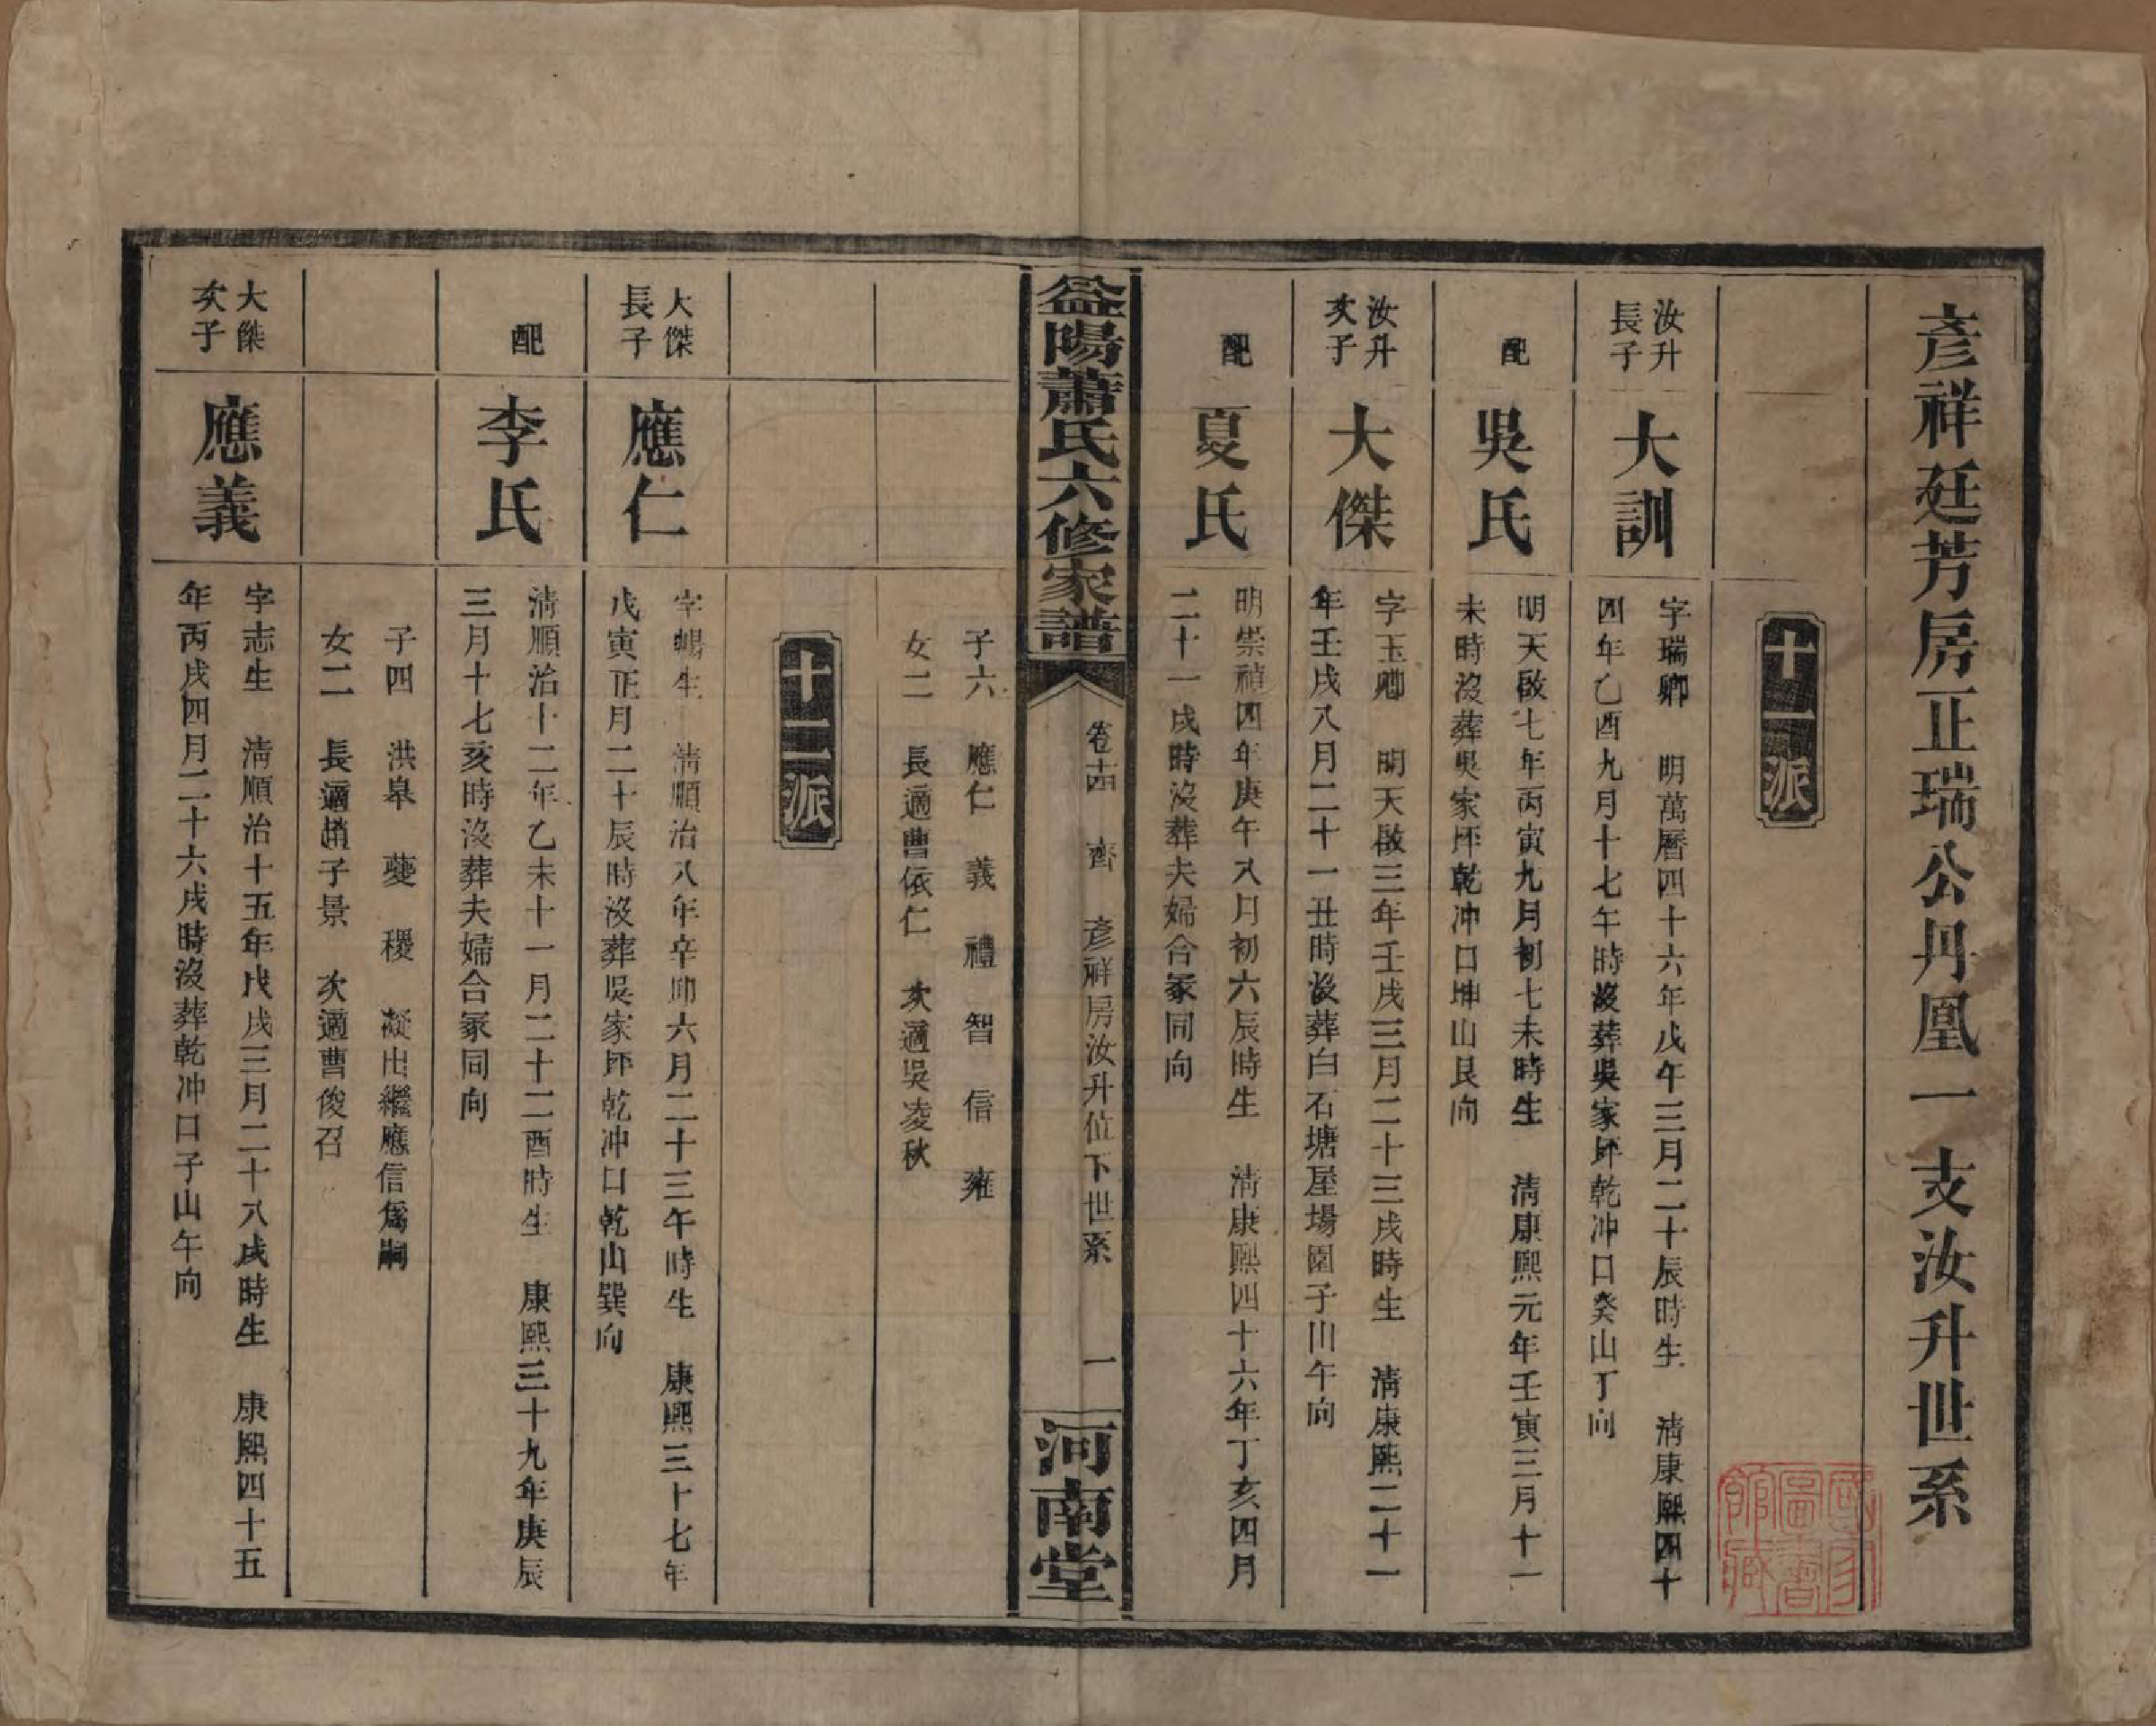 彥祥廷芳房正瑞公丹鳳一支汝升世系
十一派
汝升
長子
大訓
字瑞卿　明萬曆四十六年戊午三月二十辰時生　清康熙四十
四年乙酉九月十七午時沒葬吳家坪乾冲口癸山丁向
配
吳氏
明天啟七年丙寅九月初七未時生　清康熙元年壬寅三月十一
未時沒葬吳家坪乾冲口坤山艮向
汝升
次子
大傑
字玉卿　明天啟三年壬戌三月二十三戌時生　清康熙二十一
年壬戌八月二十一丑時沒葬白石塘屋場園子山午向
配
夏氏
明崇禎四年庚午八月初六辰時生　清康熙四十六年丁亥四月
二十一戌時沒葬夫婦合冢同向
益陽蕭氏六修家譜
卷十四　齊　彥祥房汝升位下世系　一
河南堂
子六　應仁　義　禮　智　信　雍
女二　長適曹依仁　次適吳凌秋
十二派
大傑
長子
應仁
字暢生　清順治八年辛卯六月二十三午時生　康熙三十七年
戊寅正月二十辰時沒葬吳家坪乾冲口乾山巽向
配
李氏
清順治十二年乙未十一月二十二酉時生　康熙三十九年庚辰
三月十七亥時沒葬夫婦合冢同向
子四　洪皋　夔　稷　凝出繼應信爲嗣
女二　長適趙子景　次適曹俊召
大傑
次子
應義
字志生　清順治十五年戊戌三月二十八戌時生　康熙四十五
年丙戌四月二十六戌時沒葬乾冲口子山午向
國家圖書館藏